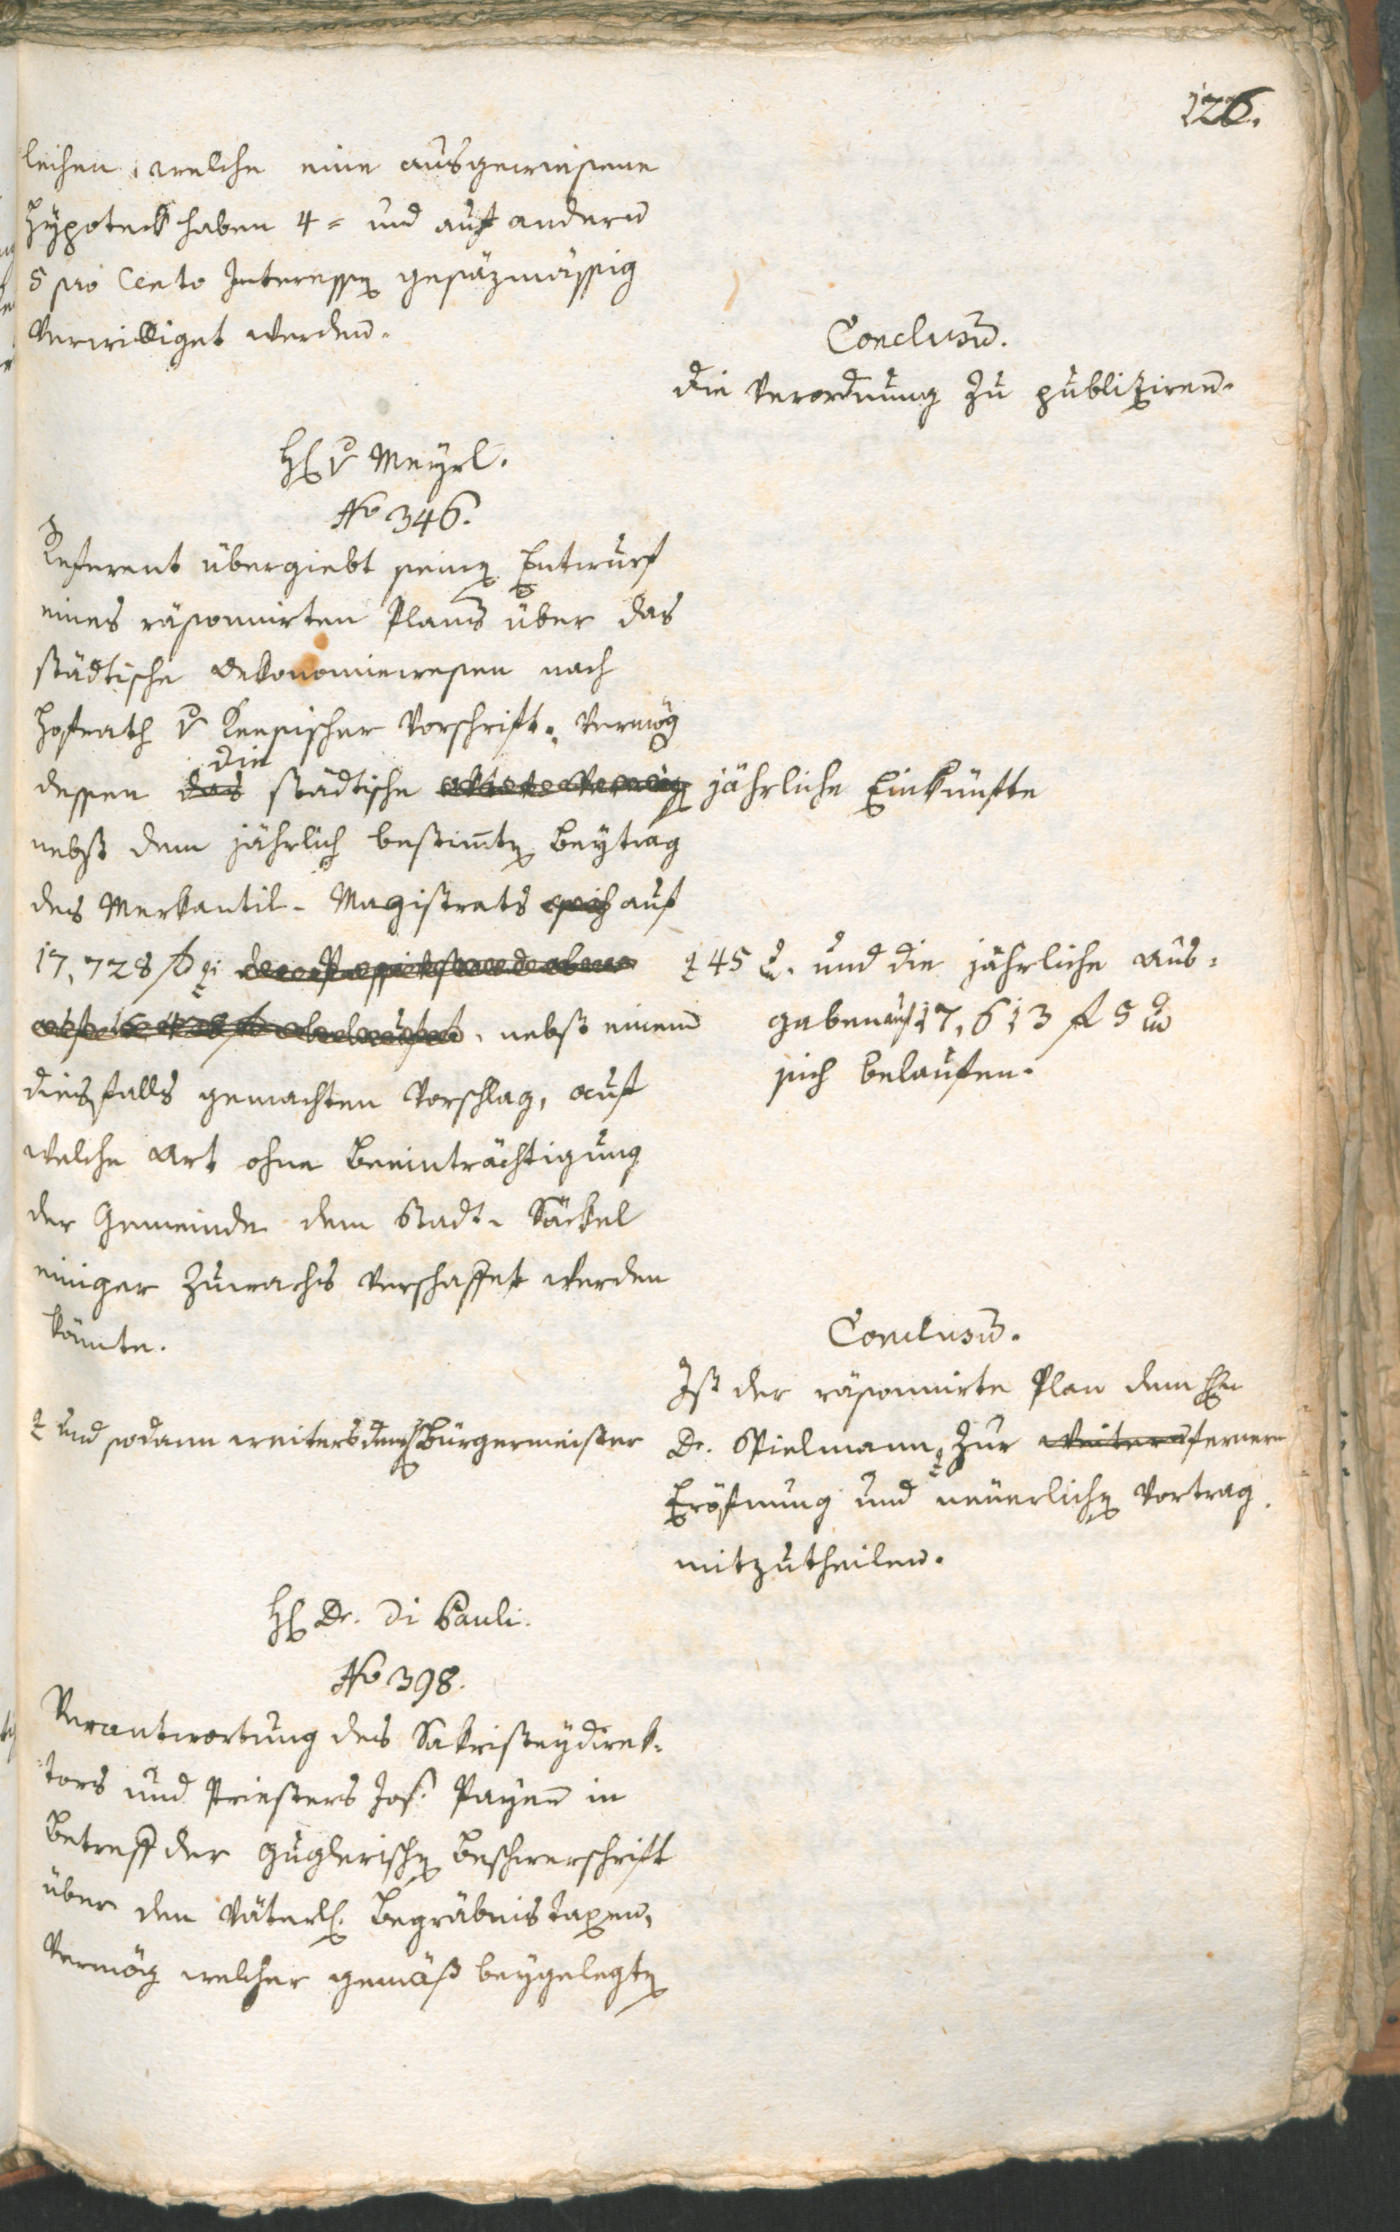 126.
leihen, welche eine ausgewiesene
Hÿpoteck haben 4= und auf andern
5 pro Cento Interessen gesäzmässig
verwilliget werden.
Conclusum.
die Verordnung zu publiziren.
H. v Meÿrl.
No 346.
Referent übergiebt seinen Entwurf
eines räsonnirten Plans über das
städtische Oekonomiewesen nach
Hofrath v Keesischer Vorschrift. Vermög
dessen das die städtische jährliche Einkünfte
nebst dem jährlich bestimten Beytrag
des Merkantil-Magistrats sich auf
17,728 f 45 x. und die jährliche Aus-
gaben auf 17,613 f 5 x
sich belaufen.
nebst einem
diesfalls gemachten Vorschlag, auf
welche Art ohne Beeinträchtigung
der Gemeinde dem Stadt-Säckel
einiger Zuwachs verschaffet werden
könnte.
Conclusum.
Ist der räsonnirte Plan dem Hn
Dr. Spielmann, zur weitern fernern
und sodann weiters dem Bürgermeister
Eröfnung und neuerlichen Vortrag
mitzutheilen.
H Dr. Di Pauli.
No 398.
Verantwortung des Sakristeydirek-
tors und Priesters Jos. Payenn in
Betreff der Guglerischen Beschwerschrift
über den Väterl. Begräbnis Taxen,
Vermög welcher gemäß beygelegten